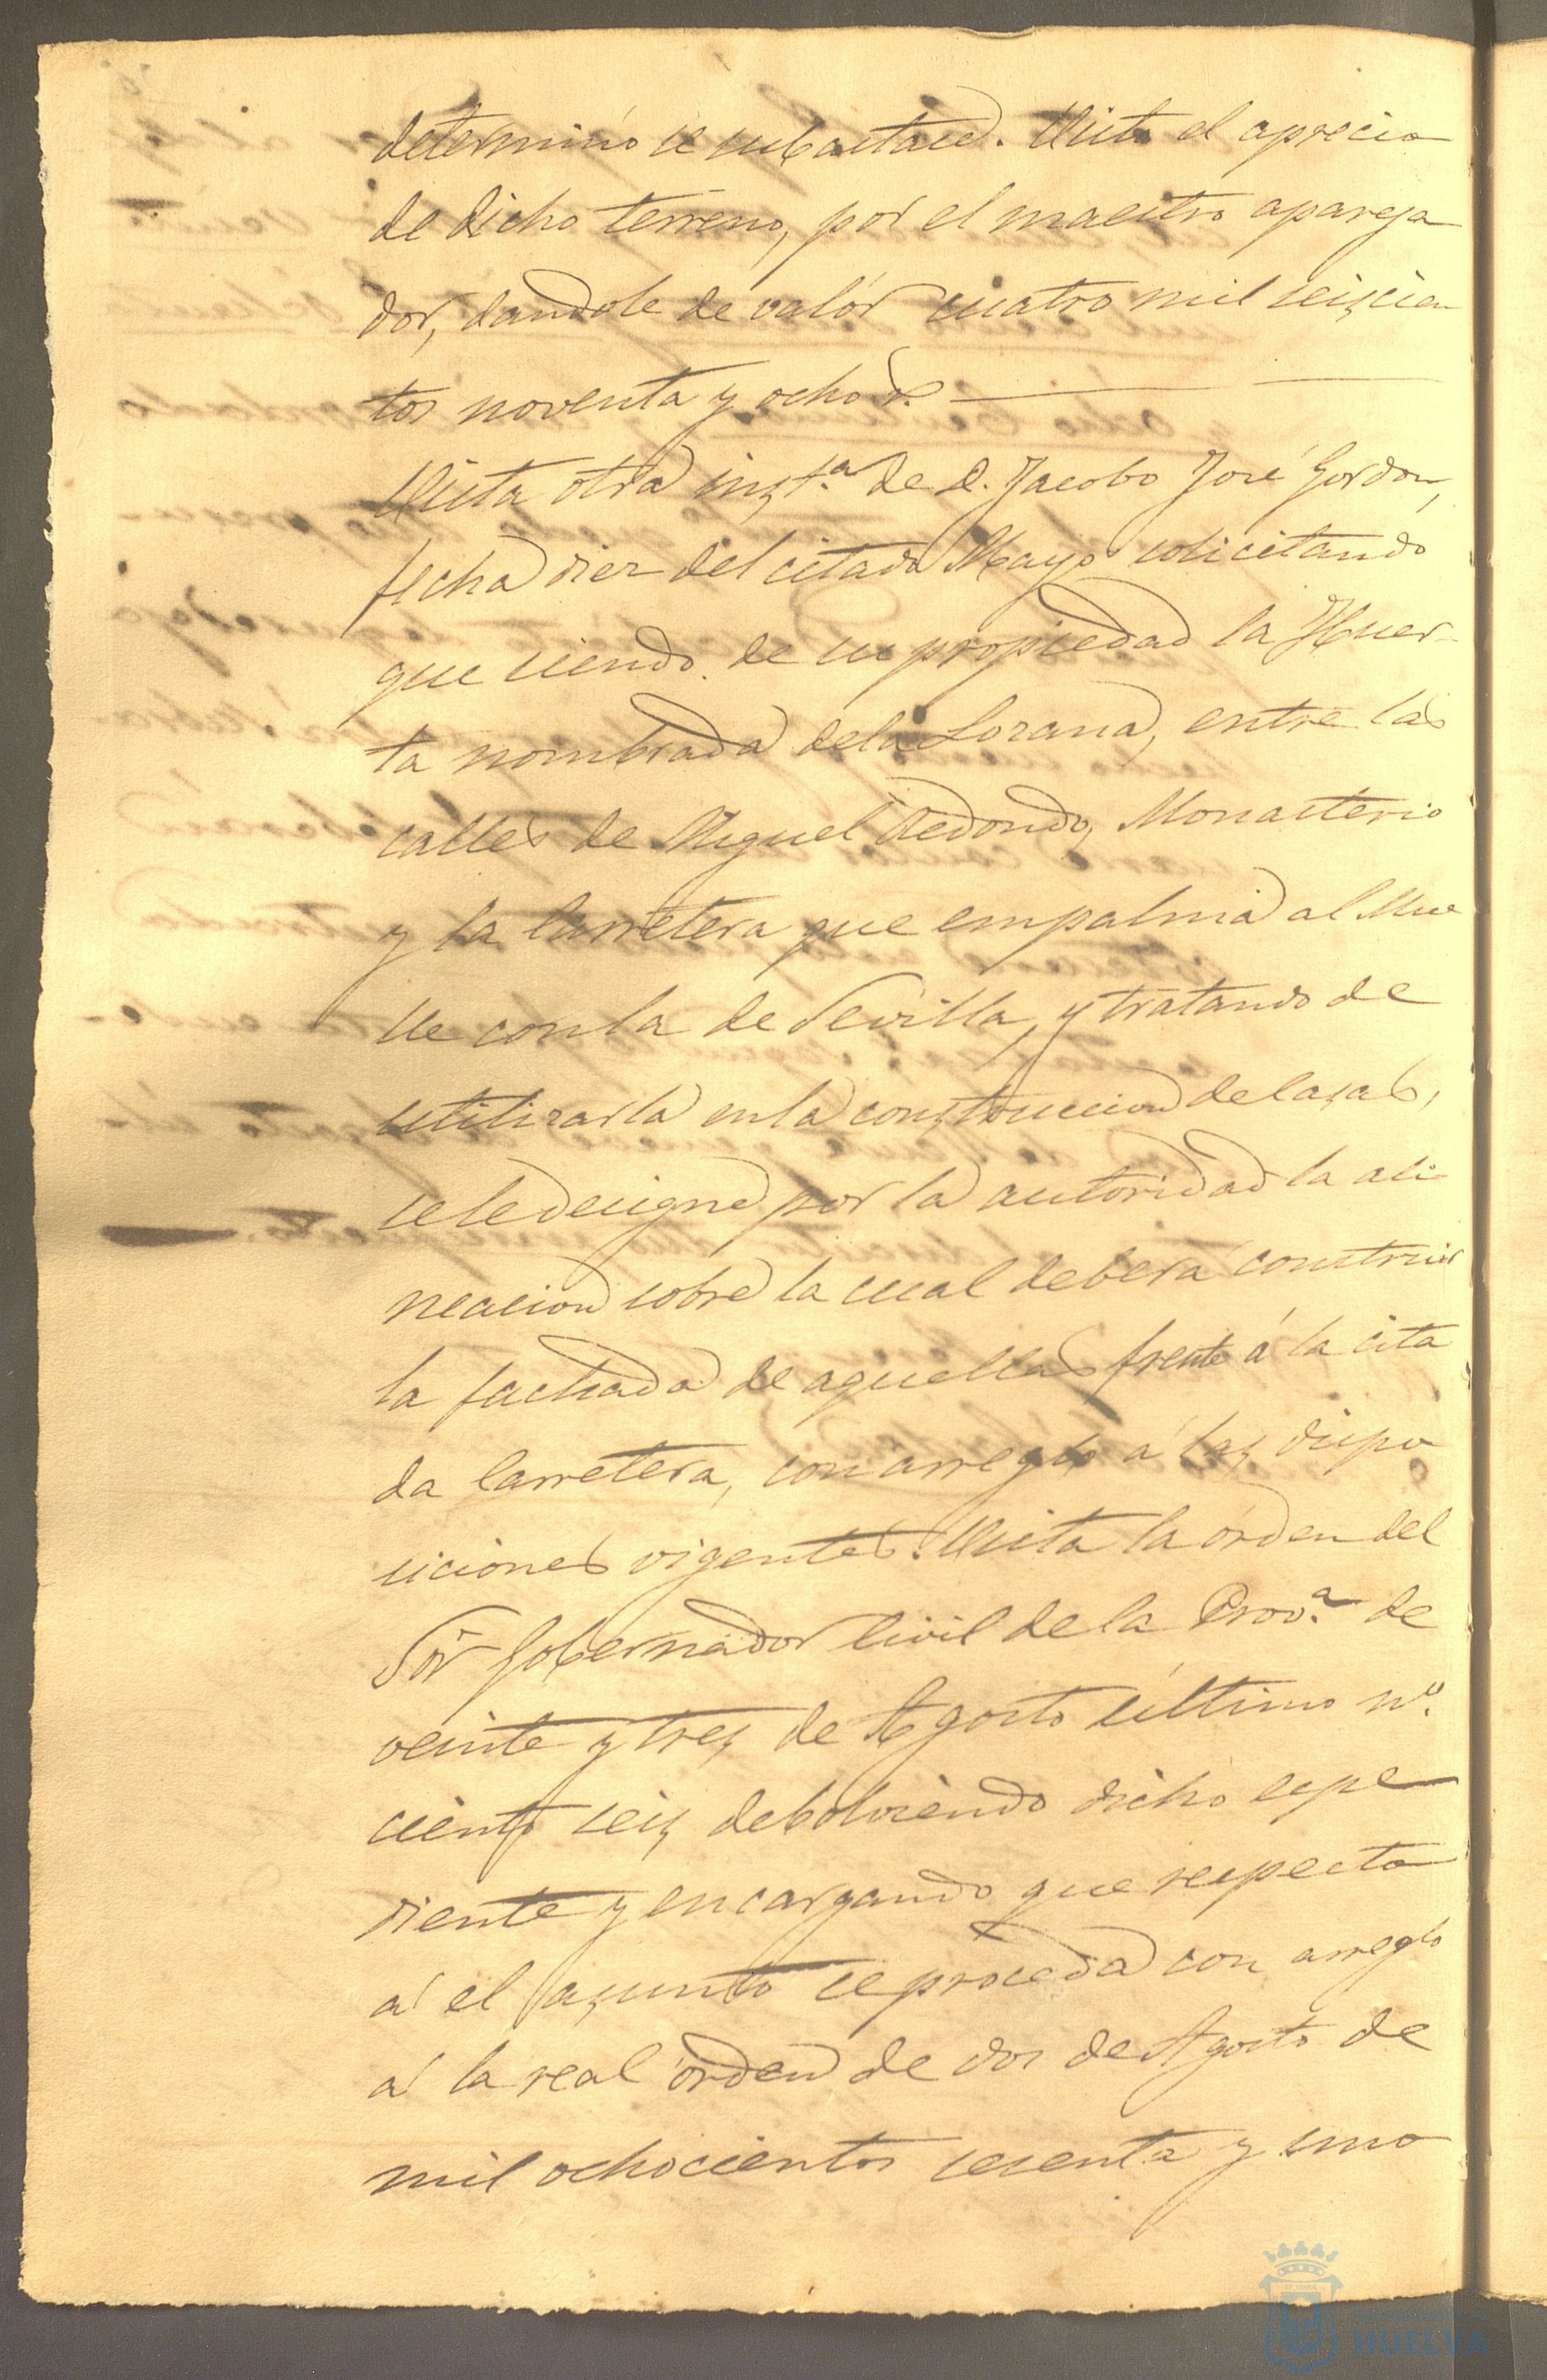 determinó se subastase. Vista el aprecio
de dicho terreno, por el maestro apareja
dor, dandole de valór cuatro mil seiscien
tos noventa y ocho r.
Vista otra inst.ª de D. Jacobo José Gordon,
fecha diez del citado Mayo solicitando
que siendo de su propiedad la Huer-
ta nombrada de la Lozana, entre las
calles de Miguel Redondo, Monasterio
y la Carretera que empalma al Mue
lle con la de Sevilla, y tratando de
utilizarla en la construccion de Casas,
se le designe por la autoridad la ali-
neacion sobre la cual deberá construir
la fachada de aquellas frente á la cita
da Carretera, con arreglo á las dispo
siciones vigentes. Vista la órden del
Sór Gobernador Civil de la Prov.ª de
veinte y tres de Agosto último nº.
ciento seis debolviendo dicho espe
diente y encargando que respecto
á el asunto se proceda con arreglo
á la real órden de dos de Agosto de
mil ochocientos sesenta y uno
HUELVA